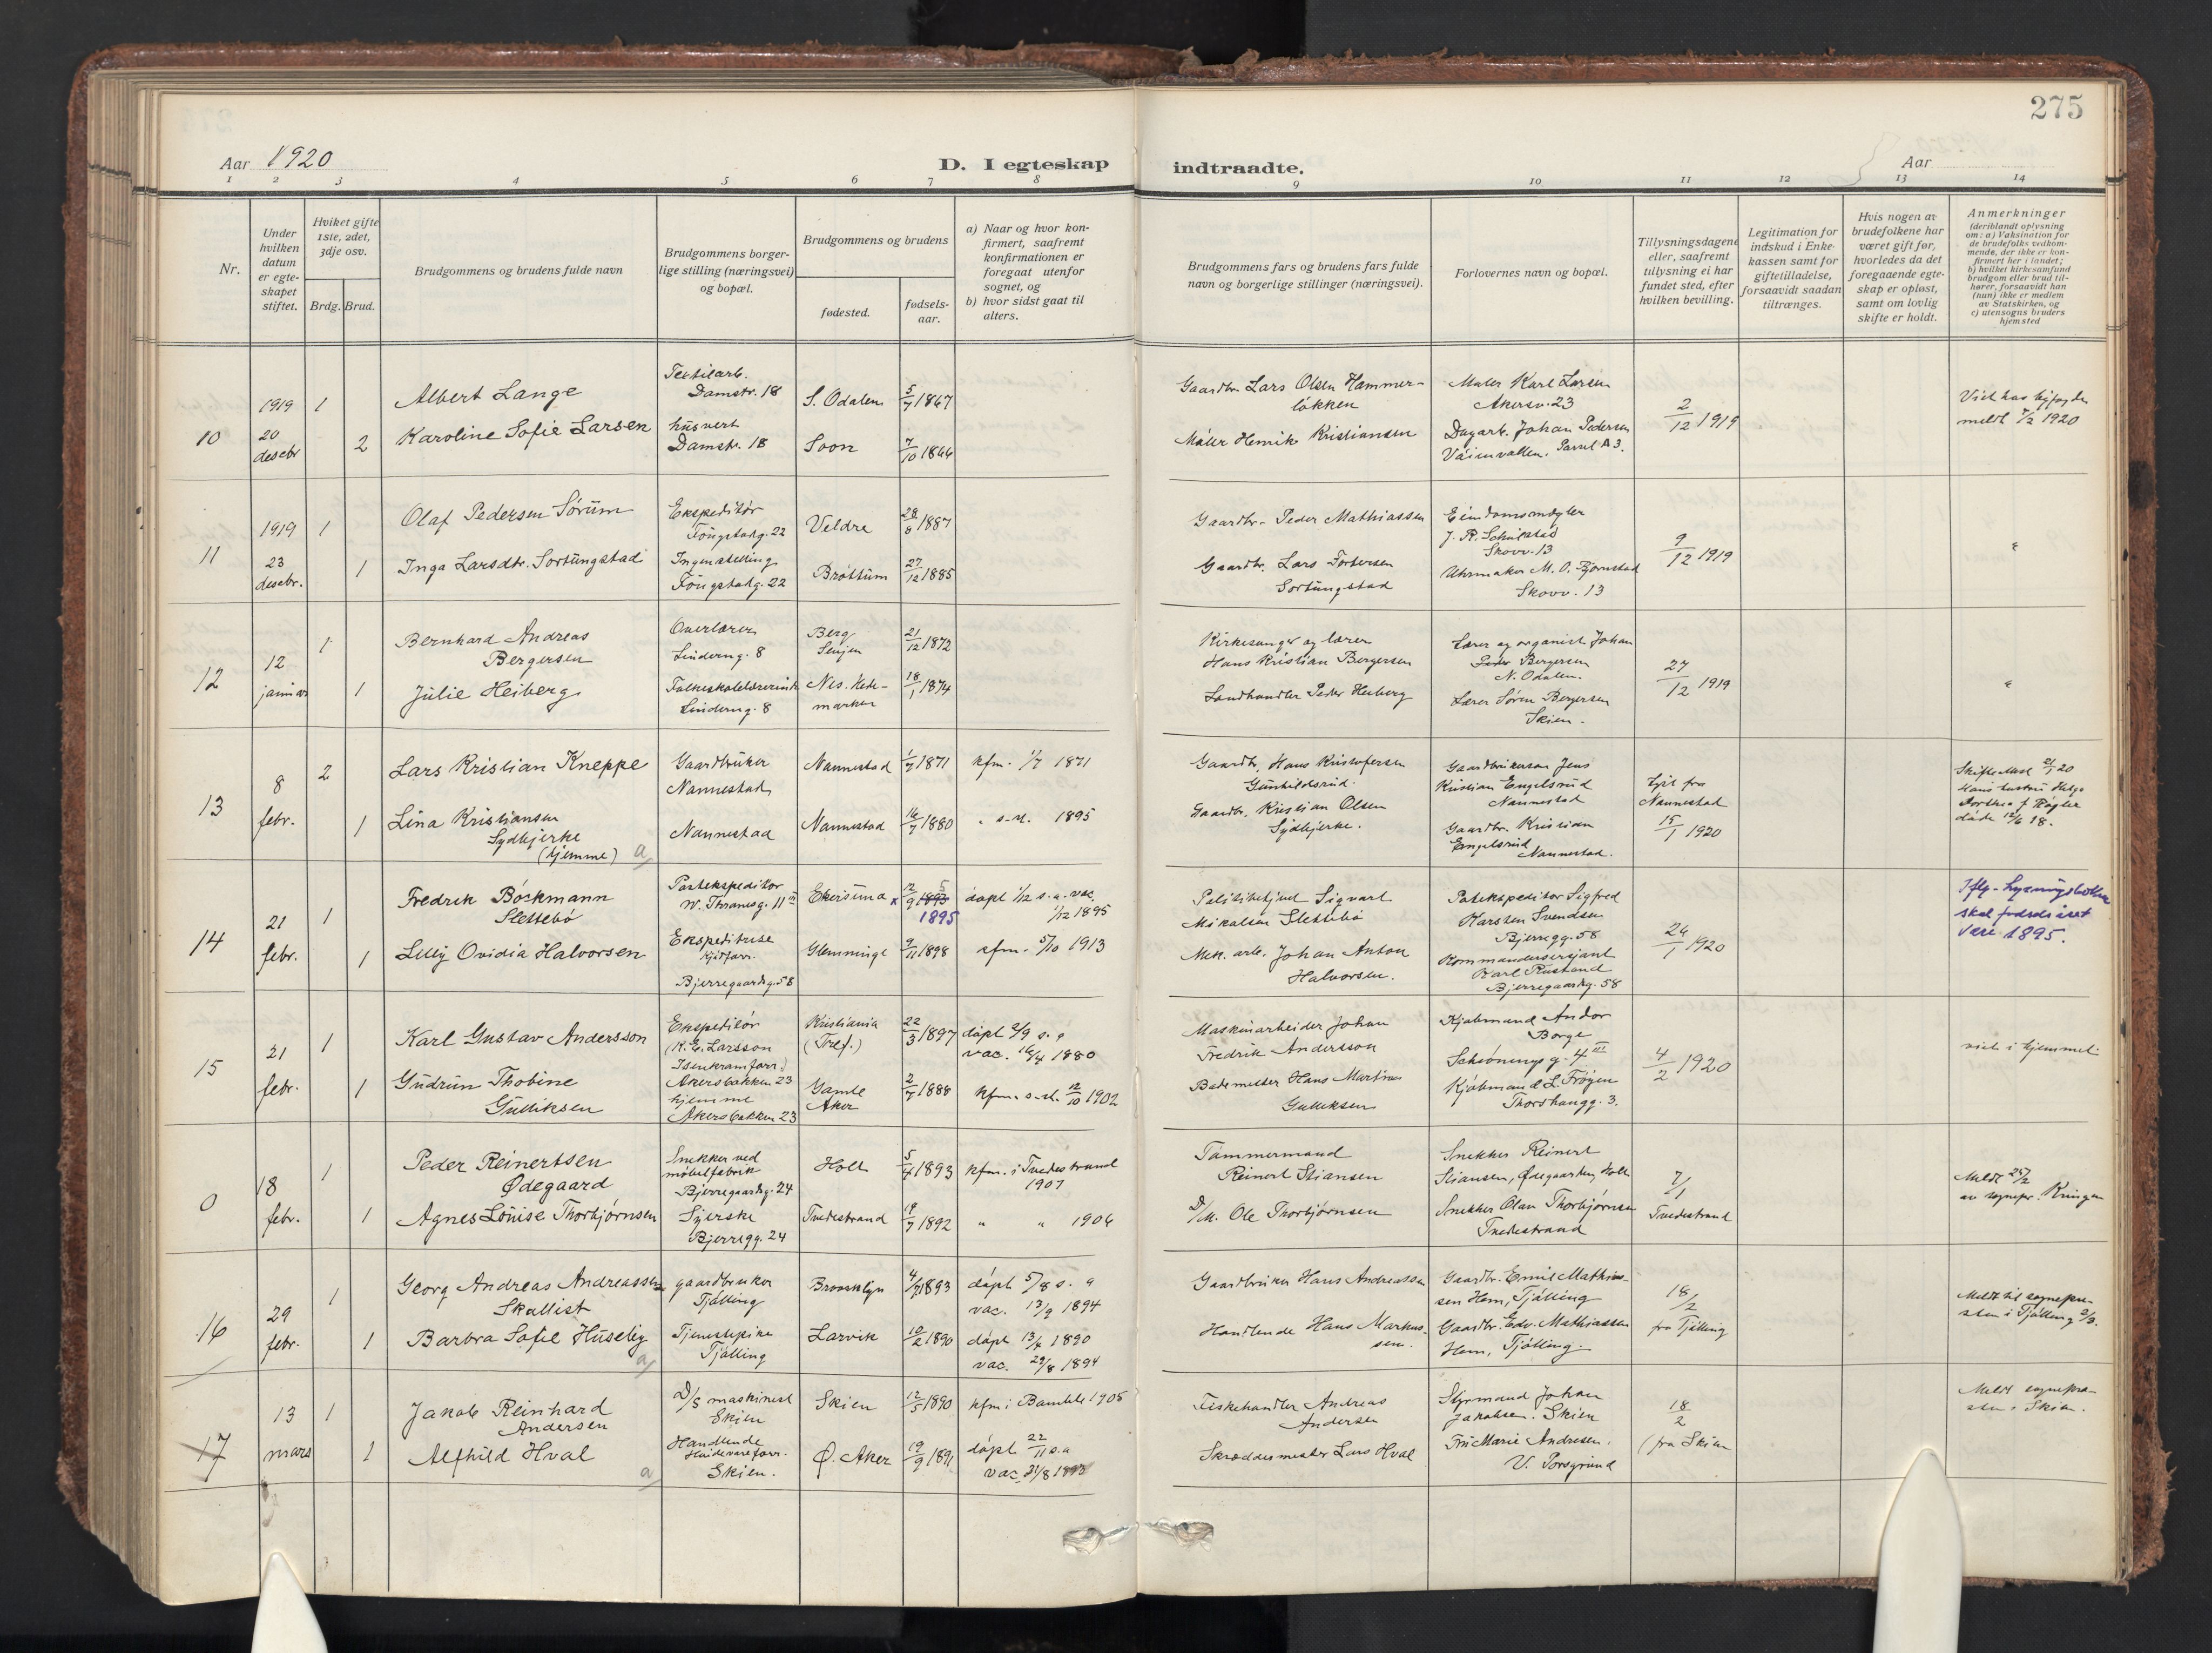 275
Aar 1920
D. I egteskap
indtraadte.
Aar
1 2 3 4 5 6 7 8 9 10 11 12 13 14
Nr.
Under
hvilken
datum
er egte-
skapet
stiftet.
Hviket gifte
1ste, 2det,
3dje osv.
Brdg. Brud.
Brudgommens og brudens fulde navn
Brudgommens borger-
lige stilling (næringsvei)
og bopæl.
Brudgommens og brudens
fødested.
fødsels-
aar.
a) Naar og hvor kon-
firmert, saafremt
konfirmationen er
foregaat utenfor
sognet, og
b) hvor sidst gaat til
alters.
Brudgommens fars og brudens fars fulde
navn og borgerlige stillinger (næringsvei).
Forlovernes navn og bopæl.
Tillysningsdagene
eller, saafremt
tillysning ei har
fundet sted, efter
hvilken bevilling.
Legitimation for
indskud i Enke-
kassen samt for
giftetilladelse,
forsaavidt saadan
tiltrænges.
Hvis nogen av
brudefolkene har
været gift før,
hvorledes da det
foregaaende egte-
skap er opløst,
samt om lovlig
skifte er holdt.
Anmerkninger
(deriblandt oplysning
om: a) Vaksination for
de brudefolks vedkom-
mende, der ikke er kon-
firmert her i landet;
b) hvilket kirkesamfund
brudgom eller brud til-
hører, forsaavidt han
(hun) ikke er medlem
av Statskirken, og
c) utensogns bruders
hjemsted
10
1919
20
desebr
1
Albert Lange
Textilarb.
Damstr. 18
S. Odalen
5/7 1867
Gaardbr. Lars Olsen Hammer-
løkken
Maler Karl Larsen
Akersv. 23
2/12 1919
meldt 7/2 1920
2
Karoline Sofie Larsen
husvert
Damstr. 18
Soon
7/10 1866
Maler Henrik Kristiansen
Dagarb. Johan Pedersen
11
1919
23
desebr.
1
Olaf Pedersen Sørum
Ekspeditør
22
Veldre
28/8 1887
Gaardbr. Peder Mathiassen
Eiendomsmægler
J. R. Schulstad
Skovv. 13
9/12 1919
"
1
Inga Larsdtr. Sortungstad
Ingen stilling
22
Brøttum
27/12 1885
Gaardbr. Lars Torbersen
Sortungstad
Uhrmaker M. O. Bjørnstad
Skovv. 13
12
12
januar
1
Bernhard Andreas
Bergersen
Overlærer
Linderng. 8
Berg
Senjen
21/12 1872
Kirkesanger og lærer
Hans Kristian Bergersen
Lærer og organist Johan
Peder Bergersen
N. Odalen.
27/12 1919
"
1
Julie Heiberg
Folkeskolelærerinde
Linderng. 8
Nes. Hede-
marken
18/1 1874
Landhandler Peder Heiberg
Lærer Søren Bergersen
Skien.
13
8
febr.
2
Lars Kristian Kneppe
Gaardbruker
Nannestad
Nannestad
1/7 1871
kfm. 1/7 1871
Gaardbr. Hans Kristofersen
Gunhildsrud.
Gaardbrukerson Jens
Kristian Engelsrud
Nannestad
Lyst fra
Nannestad
15/1 1920
Skifteattest 21/1 20
1
Lina Kristiansen
Sydkjerke
(hjemme) a/
Nannestad
Nannestad
16/7 1880
" s. st. 1895
Gaardbr. Kristian Olsen
Sydkjerke.
Gaardbr. Kristian
Engelsrud
Nannestad.
14
21
febr.
1
Fredrik Böckmann
Slettebö
Postekspeditör
W. Thranesg. 11 III
Ekersund
12/9 1893
1895
döpt 1/12 s. a. vac.
1/12 1895
Politibetjent Sigvart
Mikalsen Slettebö
Postekspeditör Sigfred
Karsten Svendsen
Bjerregg. 58
24/1 1920
Iflg. Lysningsboken
skal fødselsåret
være 1895.
1
Lilly Ovidia Halvorsen
Ekspeditrise
kjötforr.
Bjerregaardsg. 58
Glemminge
9/11 1898
kfm. 5/10 1913
Mek. arb. Johan Anton
Halvorsen.
Kommandersersjant
Karl Rustand
Bjerregaardsg. 58
15
21
febr.
1
Karl Gustav Andersson
Ekspeditör
(K. E. Larsson
Isenkramforr.)
Akersbakken 23
Kristiania
(Tref.)
22/3 1897
döpt 2/9 s. a
vac. 16/4 1880
Maskinarbeider Johan
Fredrik Andersson
Kjøbmand Andor
Borge
Schönings g. 4 III
4/2 1920
viet i hjemmet.
1
Gudrun Thobine
Gulliksen
hjemme
Akersbakken 23
Gamle
Aker
2/7 1888
kfm. s. st. 12/10 1902
Bademester Hans Martin
Gulliksen
Kjøbmand L. Fröyen
Thorshaugg. 3.
0
18
febr.
1
Peder Reinertsen
Ødegaard
Snekker ved
møbelfabrik
Bjerregaardsg. 24
Holt
5/4 1893
kfm. i Tvedestrand
1907
Tömmermand
Reinert Stiansen
Snekker Reinert
Stiansen, Ødegaarden, Holt
7/1
Tvedestrand
Meldt 25/2
av sognepr. Kringen
1
Agnes Lovise Thorbjørnsen
Syerske
Bjerregg. 24
Tvedestrand
19/7 1892
" " 1906
D/M. Ole Thorbjørnsen
Snekker Olav Thorbjørnsen
Tvedestrand
16
29
febr.
1
Georg Andreas Andreassen
Skallist
gaardbruker
Tjølling
Broooklyn
4/7 1893
döpt 5/8 s. a
vac. 13/9 1894
Gaardbruker Hans Andreassen
Gaardbr. Emil Mathias-
sen Hem, Tjølling
18/2
fra Tjølling
Meldt til sognepre-
sten i Tjølling 2/3.
1
Barbra Sofie Huseby
a/
Tjenestepike
Tjølling
Larvik
10/2 1890
döpt 13/4 1890
vac. 29/8 1894
Handlende Hans Markus-
sen.
Gaardbr. Edv. Mathiassen
Hem, Tjølling.
17
13
mars
1
Jakob Reinhard
Andersen
D/S maskinist
Skien
Skien
12/5 1890
kfm i Bamble 1905
Fiskehandler Andreas
Andersen
Styrmand Johan
Jakobsen. Skien
18/2
(fra Skien
Meldt sognepre-
sten i Skien.
1
Alfhild Hval
a/
Handlende
Hvidevareforr.
Skien.
Ø. Aker
19/9 1891
döpt 22/11 s. a
vac. 31/8 1893
Skræddermester Lars Hval
Fru Marie Andresen.
V. Porsgrund